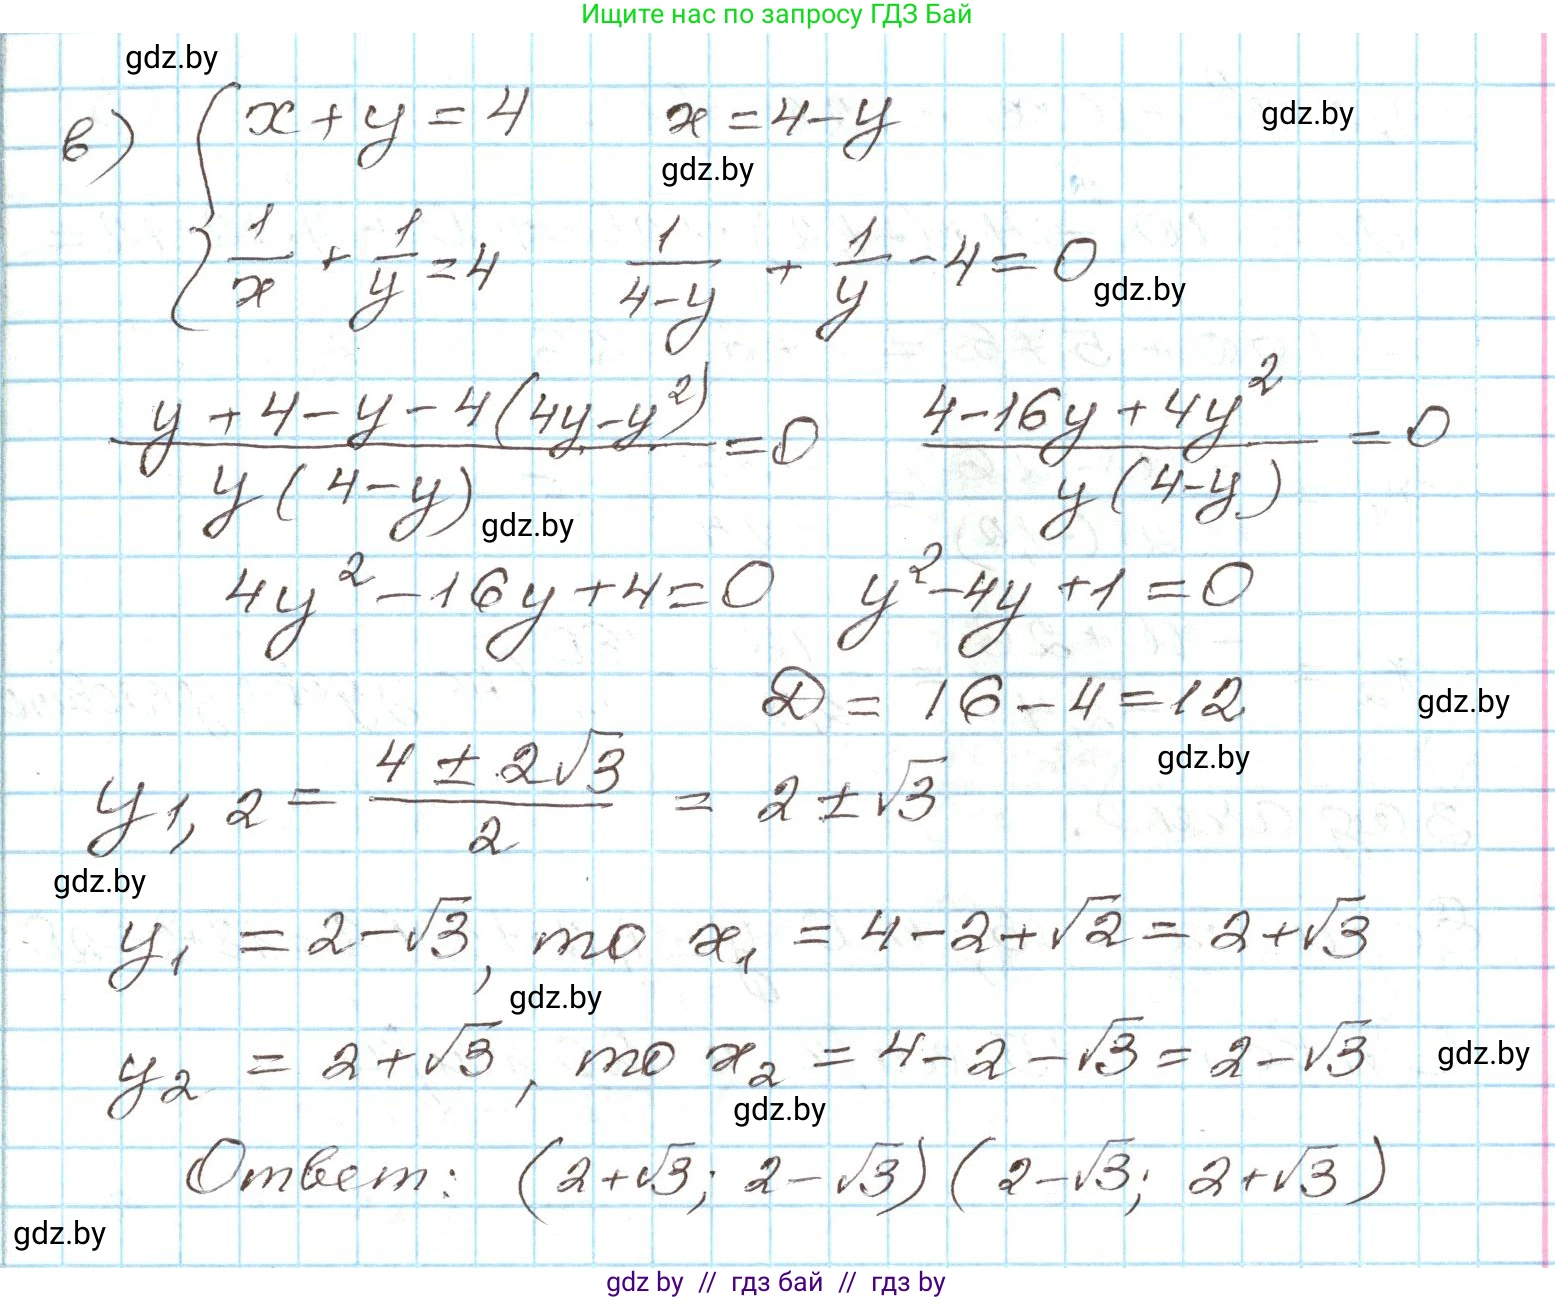 Ищите нас по запросу ГДЗ Бай
gdz.by
в) { x + y = 4 x = 4 - y
gdz.by
gdz.by
1/x + 1/y = 4 1/(4-y) + 1/y - 4 = 0
gdz.by
(y + 4 - y - 4(4y - y²))/(y(4-y)) = 0 (4 - 16y + 4y²)/(y(4-y)) = 0
gdz.by
4y² - 16y + 4 = 0 y² - 4y + 1 = 0
D = 16 - 4 = 12
gdz.by
gdz.by
y1,2 = (4 ± 2√3)/2 = 2 ± √3
gdz.by
y₁ = 2 - √3, то x₁ = 4 - 2 + √2 = 2 + √3
gdz.by
y₂ = 2 + √3, то x₂ = 4 - 2 - √3 = 2 - √3
gdz.by
gdz.by
Ответ: (2 + √3; 2 - √3) (2 - √3; 2 + √3)
gdz.by
gdz by // гдз бай // гдз by